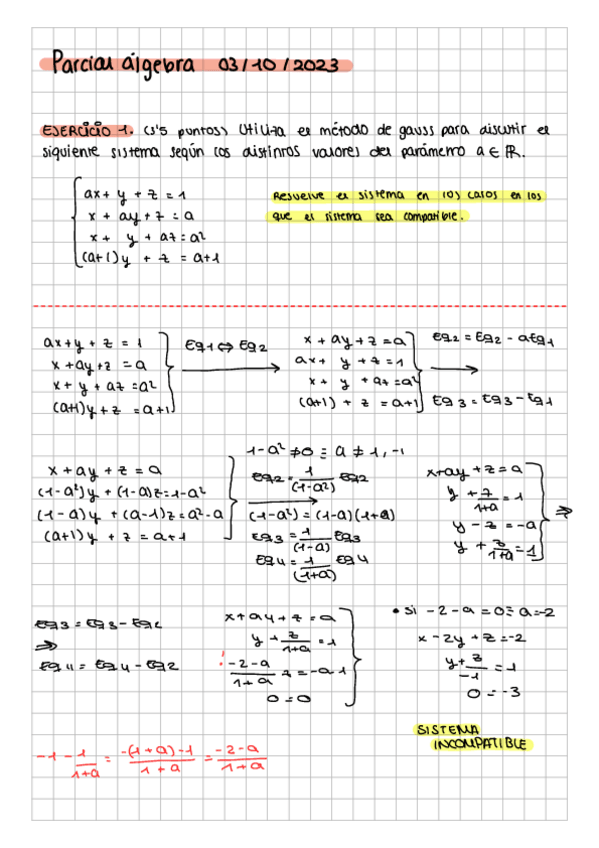 Parcial álgebra 03/10/2023
EJERCICIO 1. (3'5 puntos) Utiliza el método de gauss para discutir el
siguiente sistema según los distintos valores del parámetro a ∈ ℝ.
ax + y + z = 1
x + ay + z = a
x + y + az = a²
(a+1)y + z = a+1
Resuelve el sistema en los casos en los
que el sistema sea compatible.
ax+y + z = 1
x +ay+z = a
x+ y + az =a²
(a+1)y+z =a+1
Eq1 ⇔ Eq2
x + ay+z =a
ax+ y +z =1
x+ y +az =a²
(a+1) + z = a+1
Eq2 = Eq2 - aEq1
Eq3 = Eq3 - Eq1
x + ay + z = a
(1-a²)y + (1-a)z = 1-a²
(1-a)y + (a-1)z = a²-a
(a+1)y + z = a+1
1-a² ≠0 ≡ a ≠ 1, -1
Eq2 = 1/(1-a²) Eq2
(1-a²) = (1-a)(1+a)
Eq3 = 1/(1-a) Eq3
Eq4 = 1/(1+a) Eq4
x+ay +z = a
y + z/1+a = 1
y - z = -a
y + z/1+a = 1
⇒
Eq3 = Eq3 - Eq2
⇒
Eq4 = Eq4 - Eq2
x+ay+z =a
y + z/1+a = 1
! -2-a/1+a z = -a-1
0=0
• Si -2-a=0 ≡ a=-2
x -2y +z =-2
y+ z/-1 = 1
0 = -3
SISTEMA
INCOMPATIBLE
-1 - 1/1+a = -(1+a)-1/1+a = -2-a/1+a